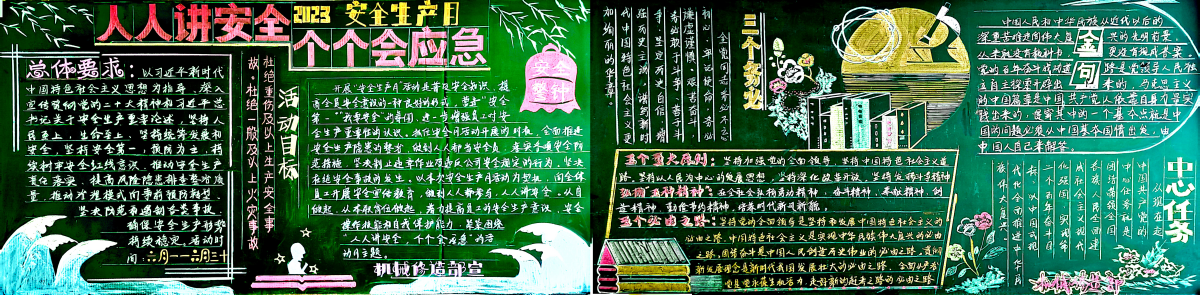 人人讲安全
个个会应急
2023 安全生产月
总体要求：以习近平新时代
中国特色社会主义思想为指导，深入
宣传贯彻党的二十大精神和习近平总
书记关于安全生产重要论述，坚持人
民至上、生命至上，坚持统筹发展和
安全，坚持安全第一，预防为主，
树牢安全红线意识，推动安全生产
责任落实，提高风险隐患排查整改质
量，推动治理模式向事前预防转型，
坚决防范和遏制各类事故，
确保安全生产形势
持续稳定。活动时
间：六月一一六月三十
杜绝重伤及以上生产安全事
故，杜绝一般及以上火灾事故
活动目标
安全
警钟
开展“安全生产月”活动是普及安全知识，提
高全员安全意识的一种良好的形式，营造“安全
第一”“我要安全”的氛围，进一步增强员工对安
全生产重要性的认识，抓住安全月活动开展的时机，全面推进
生产现场
“人人讲安全，个个会应急”的活
动月主题。
机械修造部宣
三个务必
全党同志务必不忘
初心、牢记使命，务必
谦虚谨慎、艰苦奋斗，
务必敢于斗争、善于斗
争，坚定历史自信，增
强历史主动，谱写新时
代中国特色社会主义更
加绚丽的华章。
金句
中国人民和中华民族从近代以后的
深重苦难走向伟大复兴的光明前景，
从来就没有教科书，更没有现成答案。
党的百年奋斗成功道路是党领导人民独
立自主探索开辟出来的，马克思主义
的中国篇章是中国共产党人依靠自身力量实
践出来的，贯穿其中的一个基点就是中
国的问题必须从中国基本国情出发，由
中国人自己来解答。
五个重大原则：坚持和加强党的全面领导，坚持中国特色社会主义道
路，坚持以人民为中心的发展思想，坚持深化改革开放，坚持发扬斗争精神
在全社会弘扬劳动精神、奋斗精神、奉献精神、创
造精神、勤俭节约精神，培育时代新风新貌
五个必由之路：坚持党的全面领导是坚持和发展中国特色社会主义的
必由之路，中国特色社会主义是实现中华民族伟大复兴的必由
之路，团结奋斗是中国人民创造历史伟业的必由之路，贯彻
新发展理念是新时代我国发展壮大的必由之路，全面从严治
党是党永葆生机活力、走好新的赶考之路的必由之路
中心任务
从现在起，
中国共产党的
中心任务就是
团结带领全国
各族人民全面建
成社会主义现
代化强国、实现第
二个百年奋斗目
标，以中国式现
代化全面推进中华民
族伟大复兴。